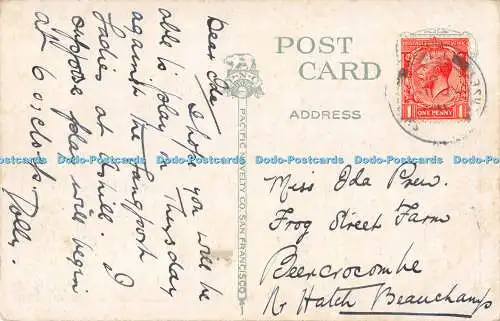 POST
CARD
ADDRESS
POSTAGE
ONE PENNY
PACIFIC NOVELTY CO. SAN FRANCISCO
Dear
I hope you will be
able to play on Thursday
against the Langport
ladies at Ashill. I
suppose play will begin
at 6 o'clock.
Dolly.
Miss Ida Prew.
Frog Street Farm
Beercrocombe
Nr Hatch Beauchamp
Dodo-Postcards Dodo-Postcards Dodo-Postcards Dodo-Postcards Dodo-Postcards Dodo-Postcards